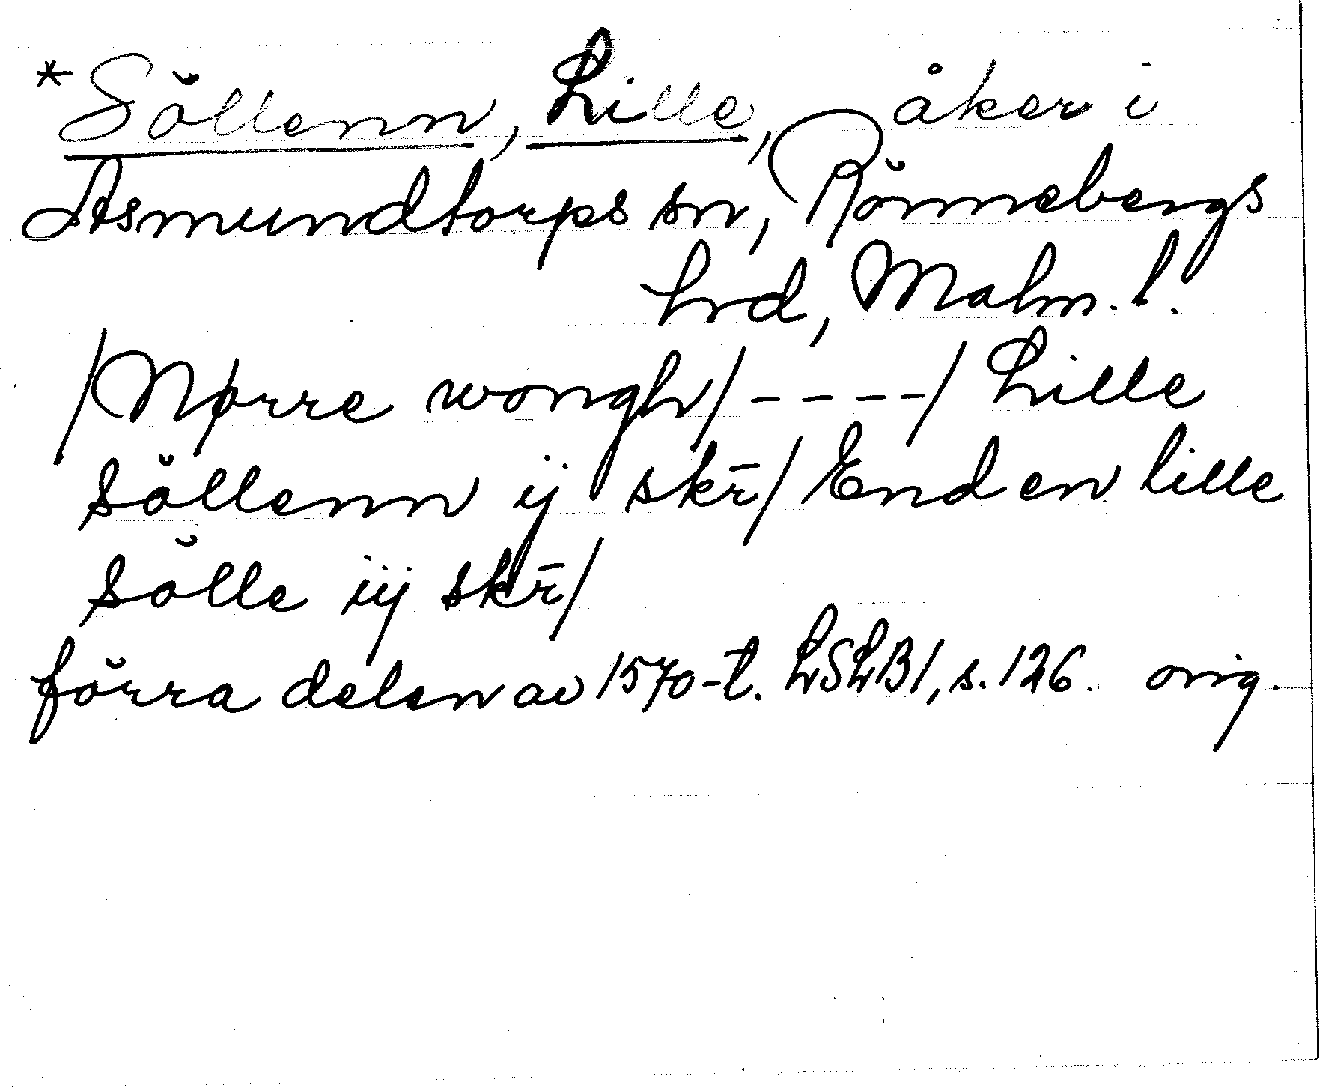 *Söllenn, Lille, åker i
Asmundtorps sn, Rönnebergs
hrd, Malm. l.
/Nørre wongh/ ----/ Lille
söllenn ij skr̄/ End en lille
sölle iij skr̄/
förra delen av 1570-t. LSLB1, s. 126. orig.